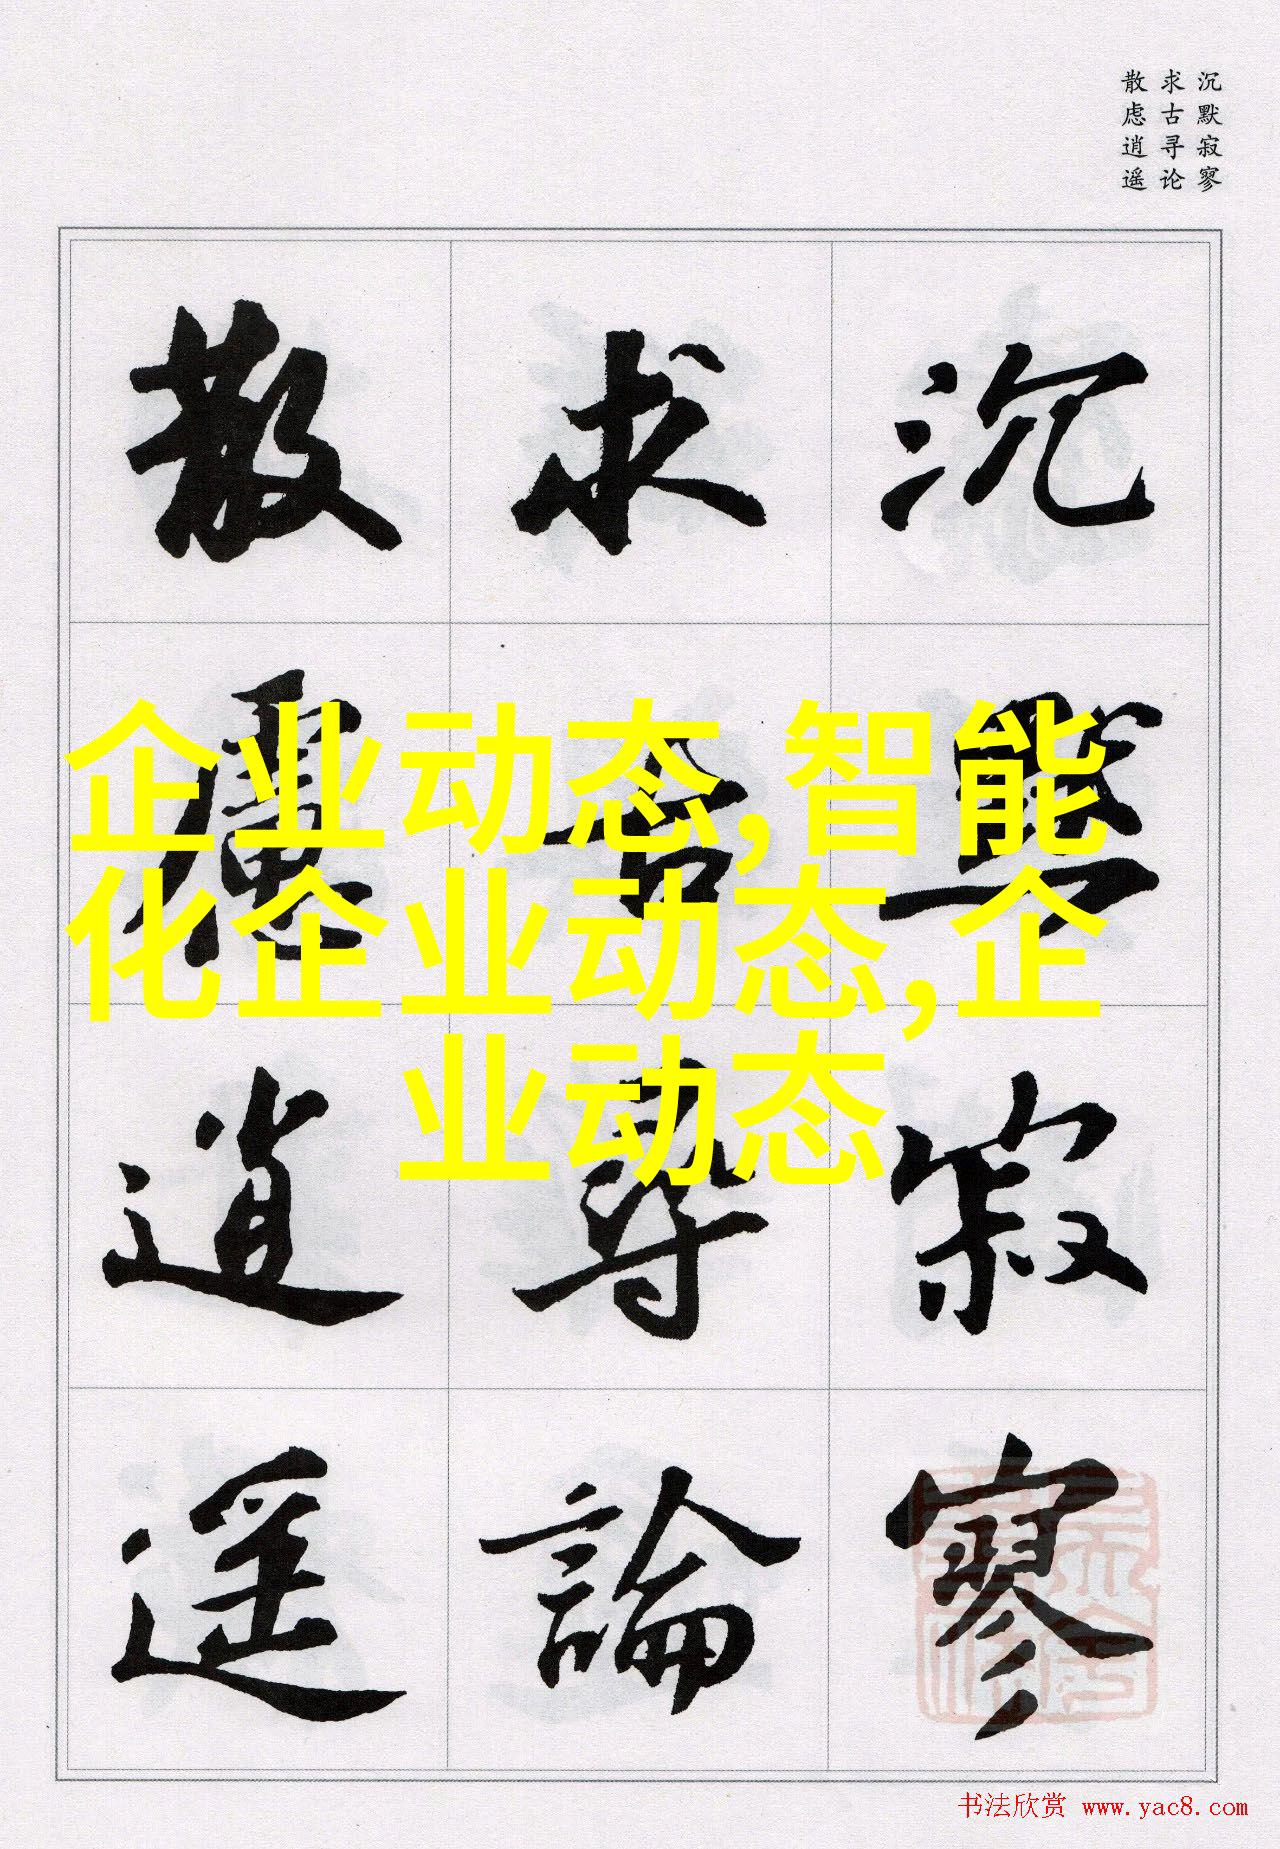 沉默寂寥
求古寻论
散虑逍遥
沉默寂寥
求古尋論
散慮逍遥
企业动态,智能
化企业动态,企
业动态
书法欣赏 www.yac8.com